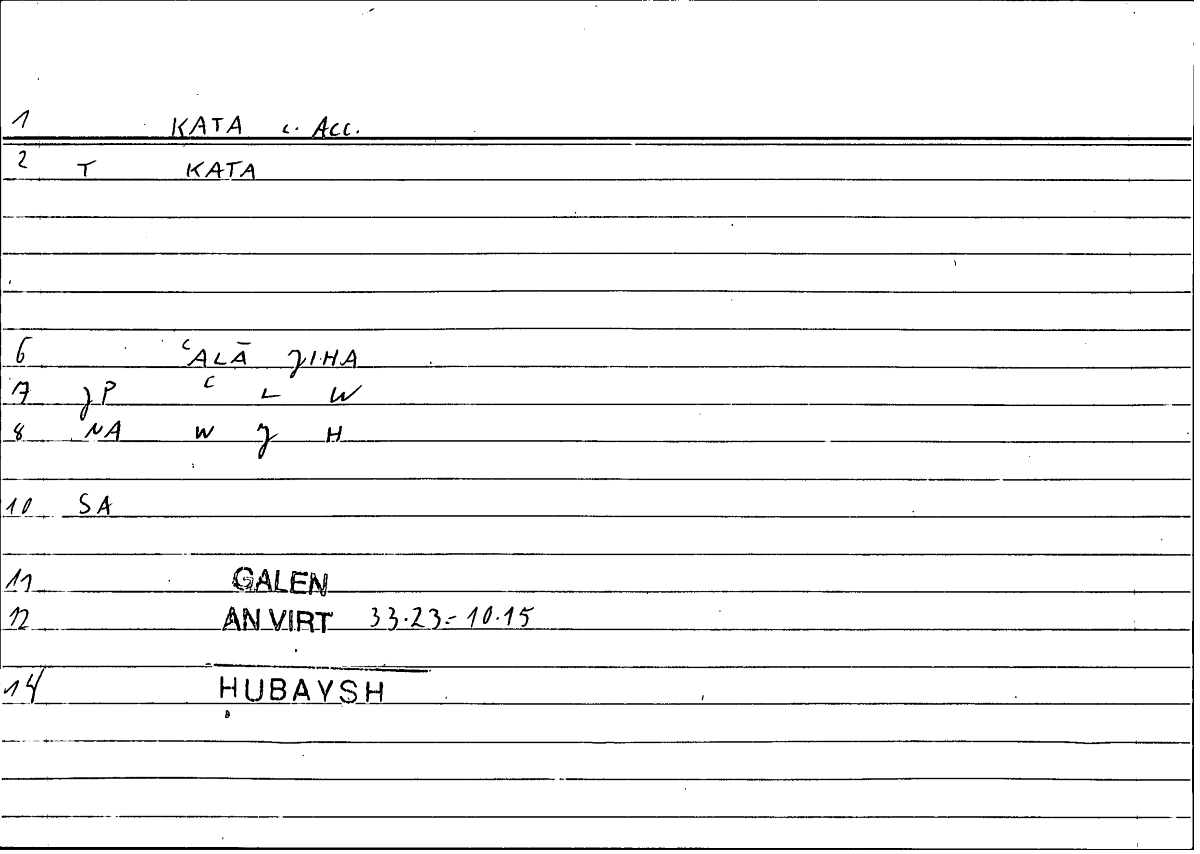 1 KATA c. Acc.
2 T KATA
6 ʿALĀ ȜIHA
7 ȜP ʿ L W
8 NA W Ȝ H
10 SA
11 GALEN
12 AN VIRT 33.23 = 10.15
14 HUBAYSH